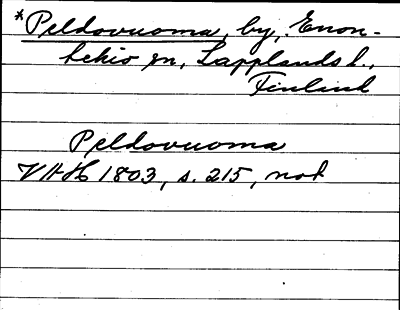 *Peldovuoma, by, Enon-
tekis sn, Lapplands l.,
Finland
Peldovuoma
VHH 1803, s. 215, not